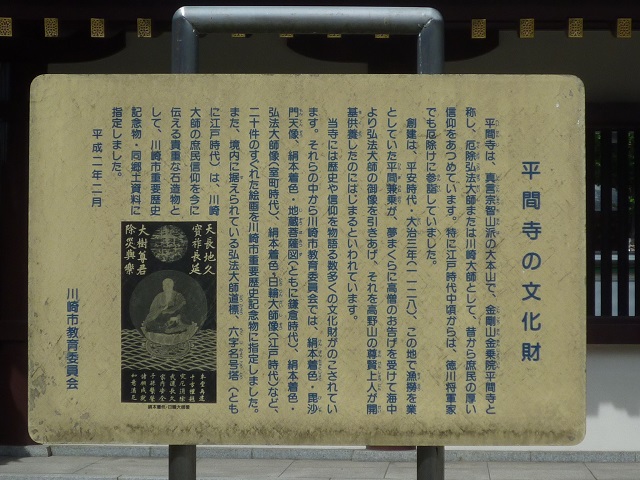 平間寺の文化財
平間寺は、真言宗智山派の大本山で、金剛山金乗院平間寺と
称し、厄除弘法大師または川崎大師として、昔から庶民の厚い
信仰をあつめています。特に江戸時代中頃からは、徳川将軍家
でも厄除けに参詣していました。
創建は、平安時代・大治三年(一一二八)、この地で漁撈を業
としていた平間兼乗が、夢まくらに高僧のお告げを受けて海中
より弘法大師の御像を引きあげ、それを高野山の尊賢上人が開
基供養したのにはじまるといわれています。
当寺には歴史や信仰を物語る数多くの文化財がのこされてい
ます。それらの中から川崎市教育委員会では、絹本着色・毘沙
門天像、絹本着色・地蔵菩薩図(ともに鎌倉時代)、絹本着色・
弘法大師像(室町時代)、絹本着色・日輪大師像(江戸時代)など、
二十件のすぐれた絵画を川崎市重要歴史記念物に指定しました。
また、境内に据えられている弘法大師道標、六字名号塔(とも
に江戸時代)は、川崎
大師の庶民信仰を今に
伝える貴重な石造物と
して、川崎市重要歴史
記念物・同郷土資料に
指定しました。
平成二年二月
川崎市教育委員会
天長地久
寳祚長延
大樹尊君
除災與樂
絹本着色・日輪大師像